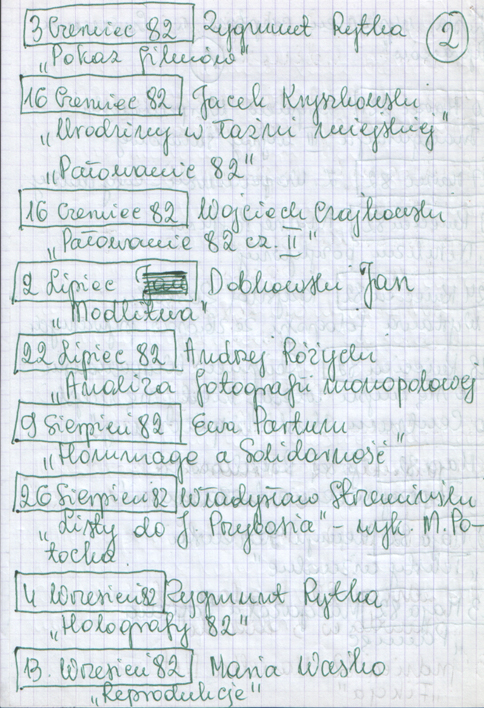 3 Czerwiec 82 Zygmunt Rytka 2
„Pokaz filmów"
16 Czerwiec 82 Jacek Kryszkowski
„Urodziny w łaźni miejskiej"
„Pałowanie 82"
16 Czerwiec 82 Wojciech Czajkowski
„Pałowanie 82 cz. II"
2 Lipiec Dobkowski Jan
„Modlitwa"
22 Lipiec 82 Andrzej Różycki
„Analiza fotografii monopolowej
9 Sierpień 82 Ewa Partum
„Hommage a Solidarność"
26 Sierpień 82 Władysław Strzemiński
„Listy do J. Przybosia" - wyk. M. Po-
tocka.
4 Wrzesień 82 Zygmunt Rytka
„Holografy 82"
13. Wrzesień 82 Maria Waśko
„Reprodukcje"